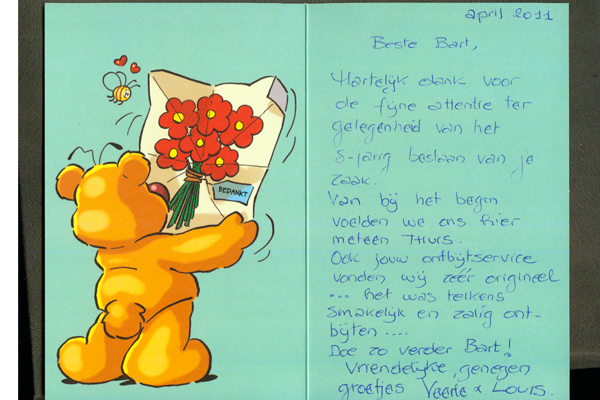 BEDANKT
april 2011
Beste Bart,
Hartelijk dank voor
de fijne attentie ter
gelegenheid van het
8-jarig bestaan van je
zaak.
Van bij het begin
voelden we ons hier
meteen THUIS.
Ook jouw ontbijtservice
vonden wij zéér origineel
... het was telkens
smakelijk en zalig ont-
bijten ....
Doe zo verder Bart!
Vriendelijke, genegen
groetjes Veerle & Louis.